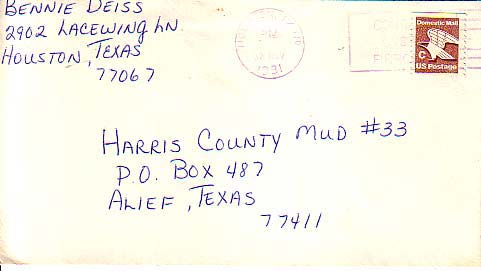 BENNIE DEISS
2902 LACEWING LN
HOUSTON, TEXAS
77067
PM
1981
Domestic Mail
C
US Postage
HARRIS COUNTY MUD #33
P.O. BOX 487
ALIEF, TEXAS
77411